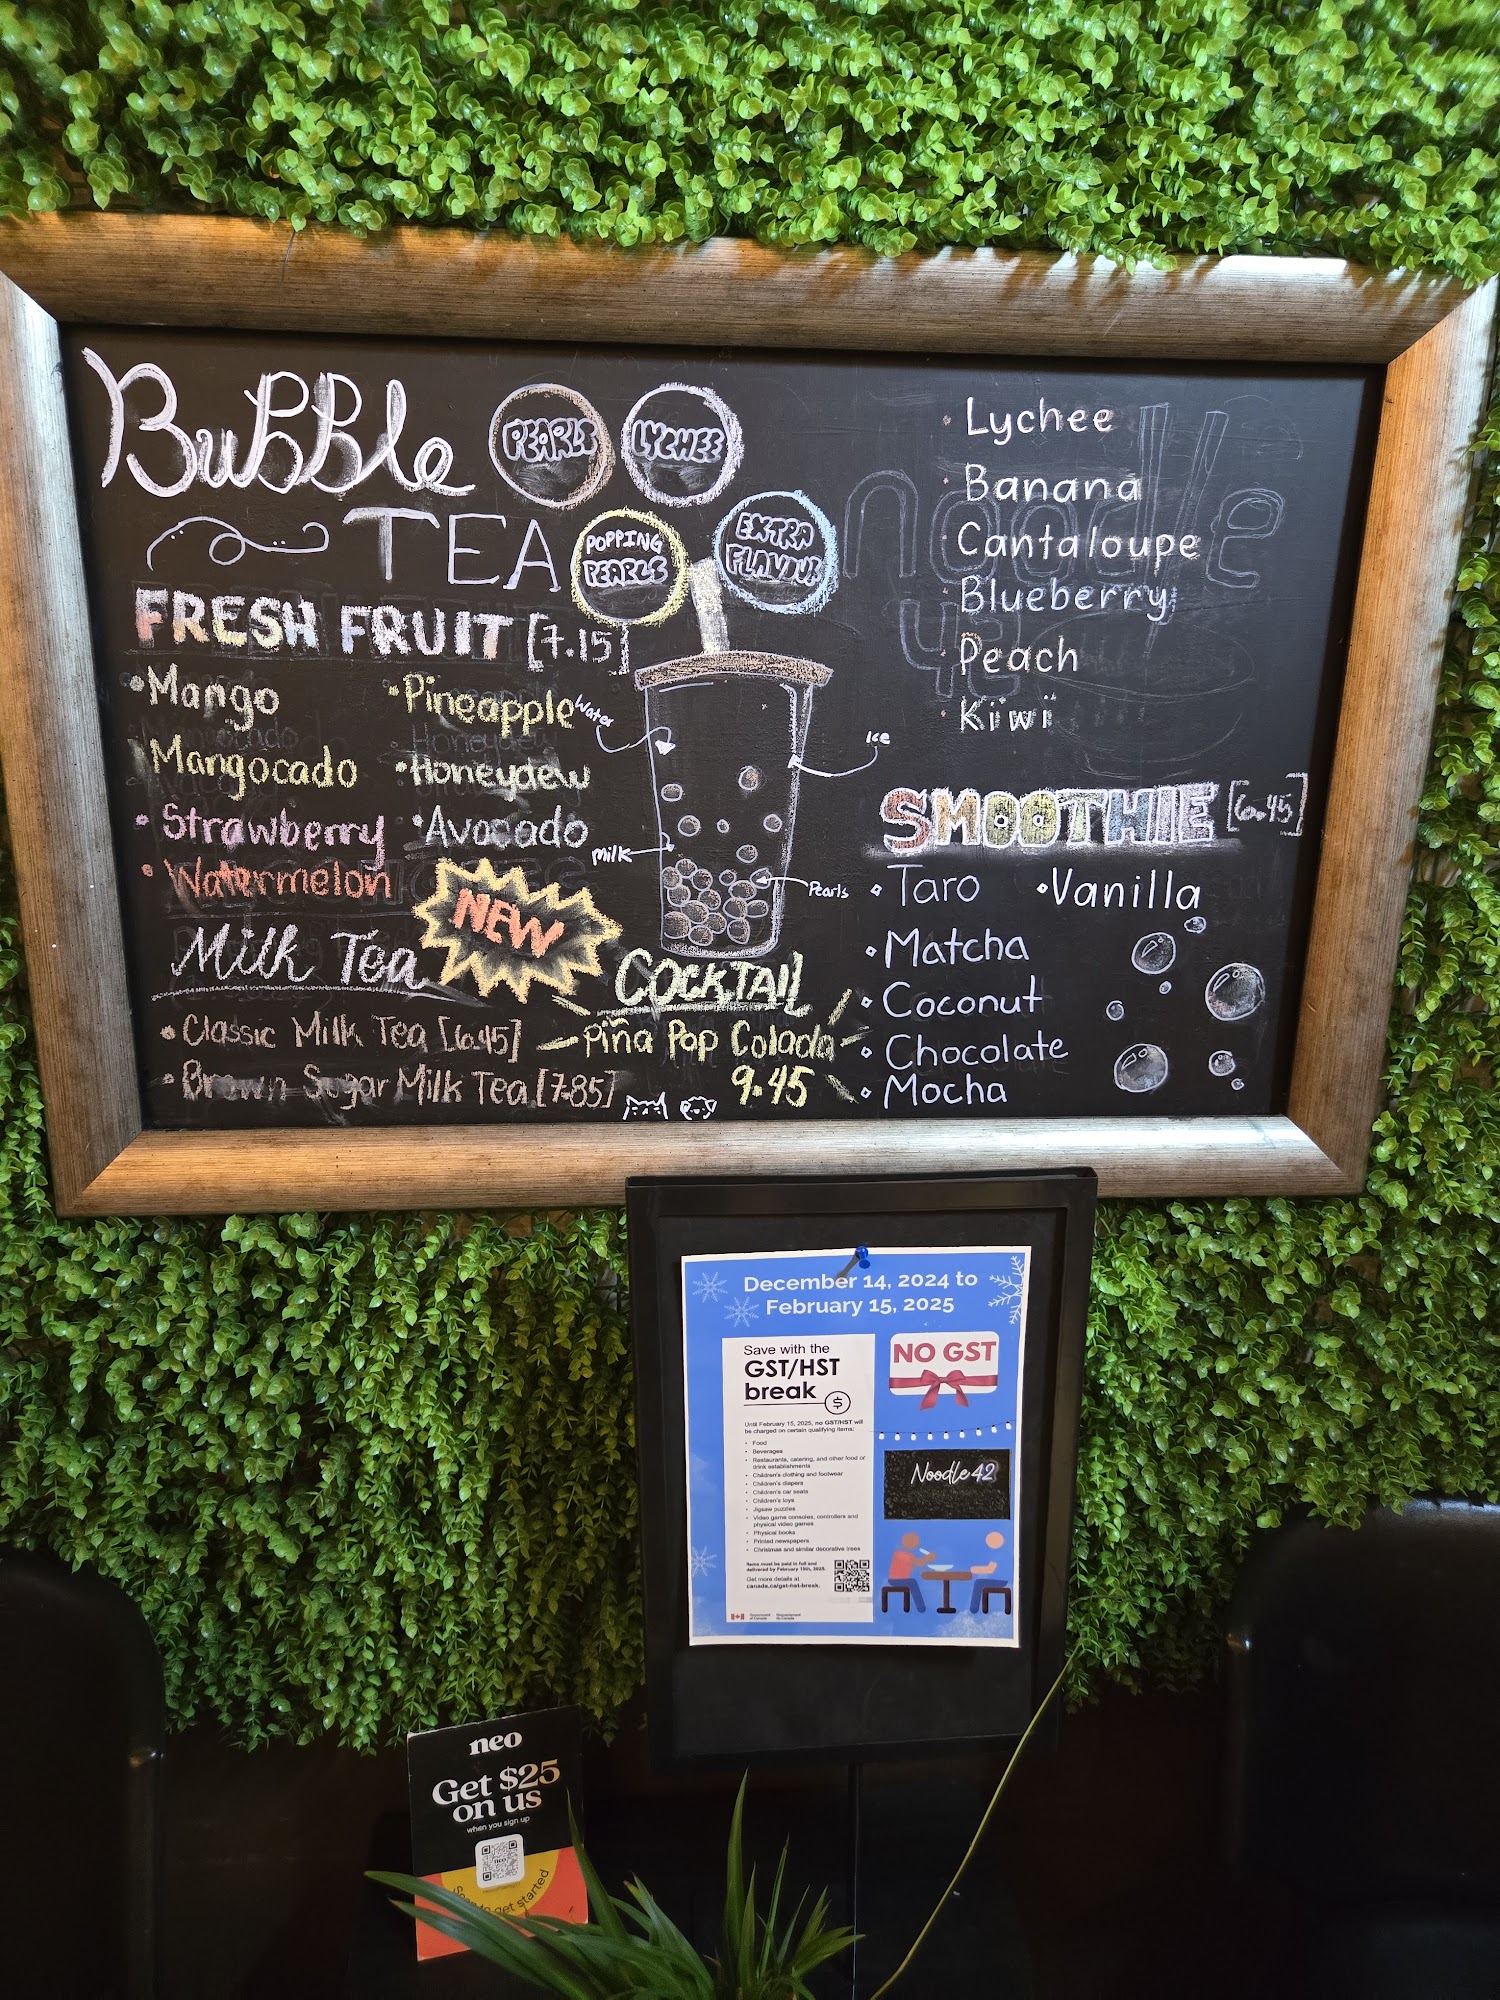 BuBBle
TEA
PEARLS
LYCHEE
POPPING
PEARLS
EXTRA
FLAVOUR
FRESH FRUIT [7.15]
•Mango
•Pineapple
•Mangocado
•Honeydew
•Strawberry
•Avocado
•Watermelon
NEW
Milk Tea
•Classic Milk Tea [6.45]
•Brown Sugar Milk Tea [7.85]
Water
Ice
milk
Pearls
COCKTAIL
Piña Pop Colada
9.45
• Lychee
• Banana
Cantaloupe
Blueberry
Peach
Kiwi
noodle
42
SMOOTHIE [6.45]
Taro
•Vanilla
Matcha
Coconut
Chocolate
Mocha
December 14, 2024 to
February 15, 2025
Save with the
GST/HST
break
Until February 15, 2025, no GST/HST will
be charged on certain qualifying items:
• Food
• Beverages
• Restaurants, catering, and other food or
drink establishments
• Children's clothing and footwear
• Children's diapers
• Children's car seats
• Children's toys
• Jigsaw puzzles
• Video game consoles, controllers and
physical video games
• Physical books
• Printed newspapers
• Christmas and similar decorative trees
Items must be paid in full and
delivered by February 15th, 2025.
Get more details at
canada.ca/gst-hst-break.
Government
of Canada
Gouvernement
du Canada
NO GST
Noodle 42
neo
Get $25
on us
when you sign up
neo
get started